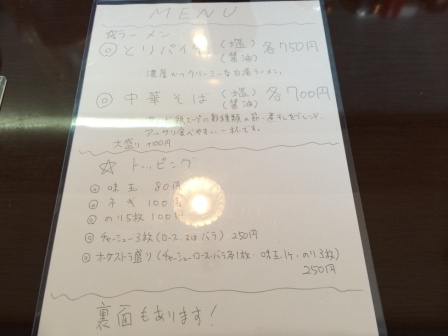 MENU
☆ラーメン
◎とりパイタン (塩)(醤油) 各750円
濃厚かつクリーミーな白湯ラーメン。
◎中華そば (塩)(醤油) 各700円
アッサリ食べやすい一杯です。
大盛り +100円
☆トッピング
◎味玉 80円
◎ネギ 100円
◎のり5枚 100円
◎チャーシュー3枚(ロース又はバラ) 250円
◎オーケストラ盛り(チャーシューロース・バラ各1枚・味玉1ケ・のり3枚)
250円
裏面もあります!